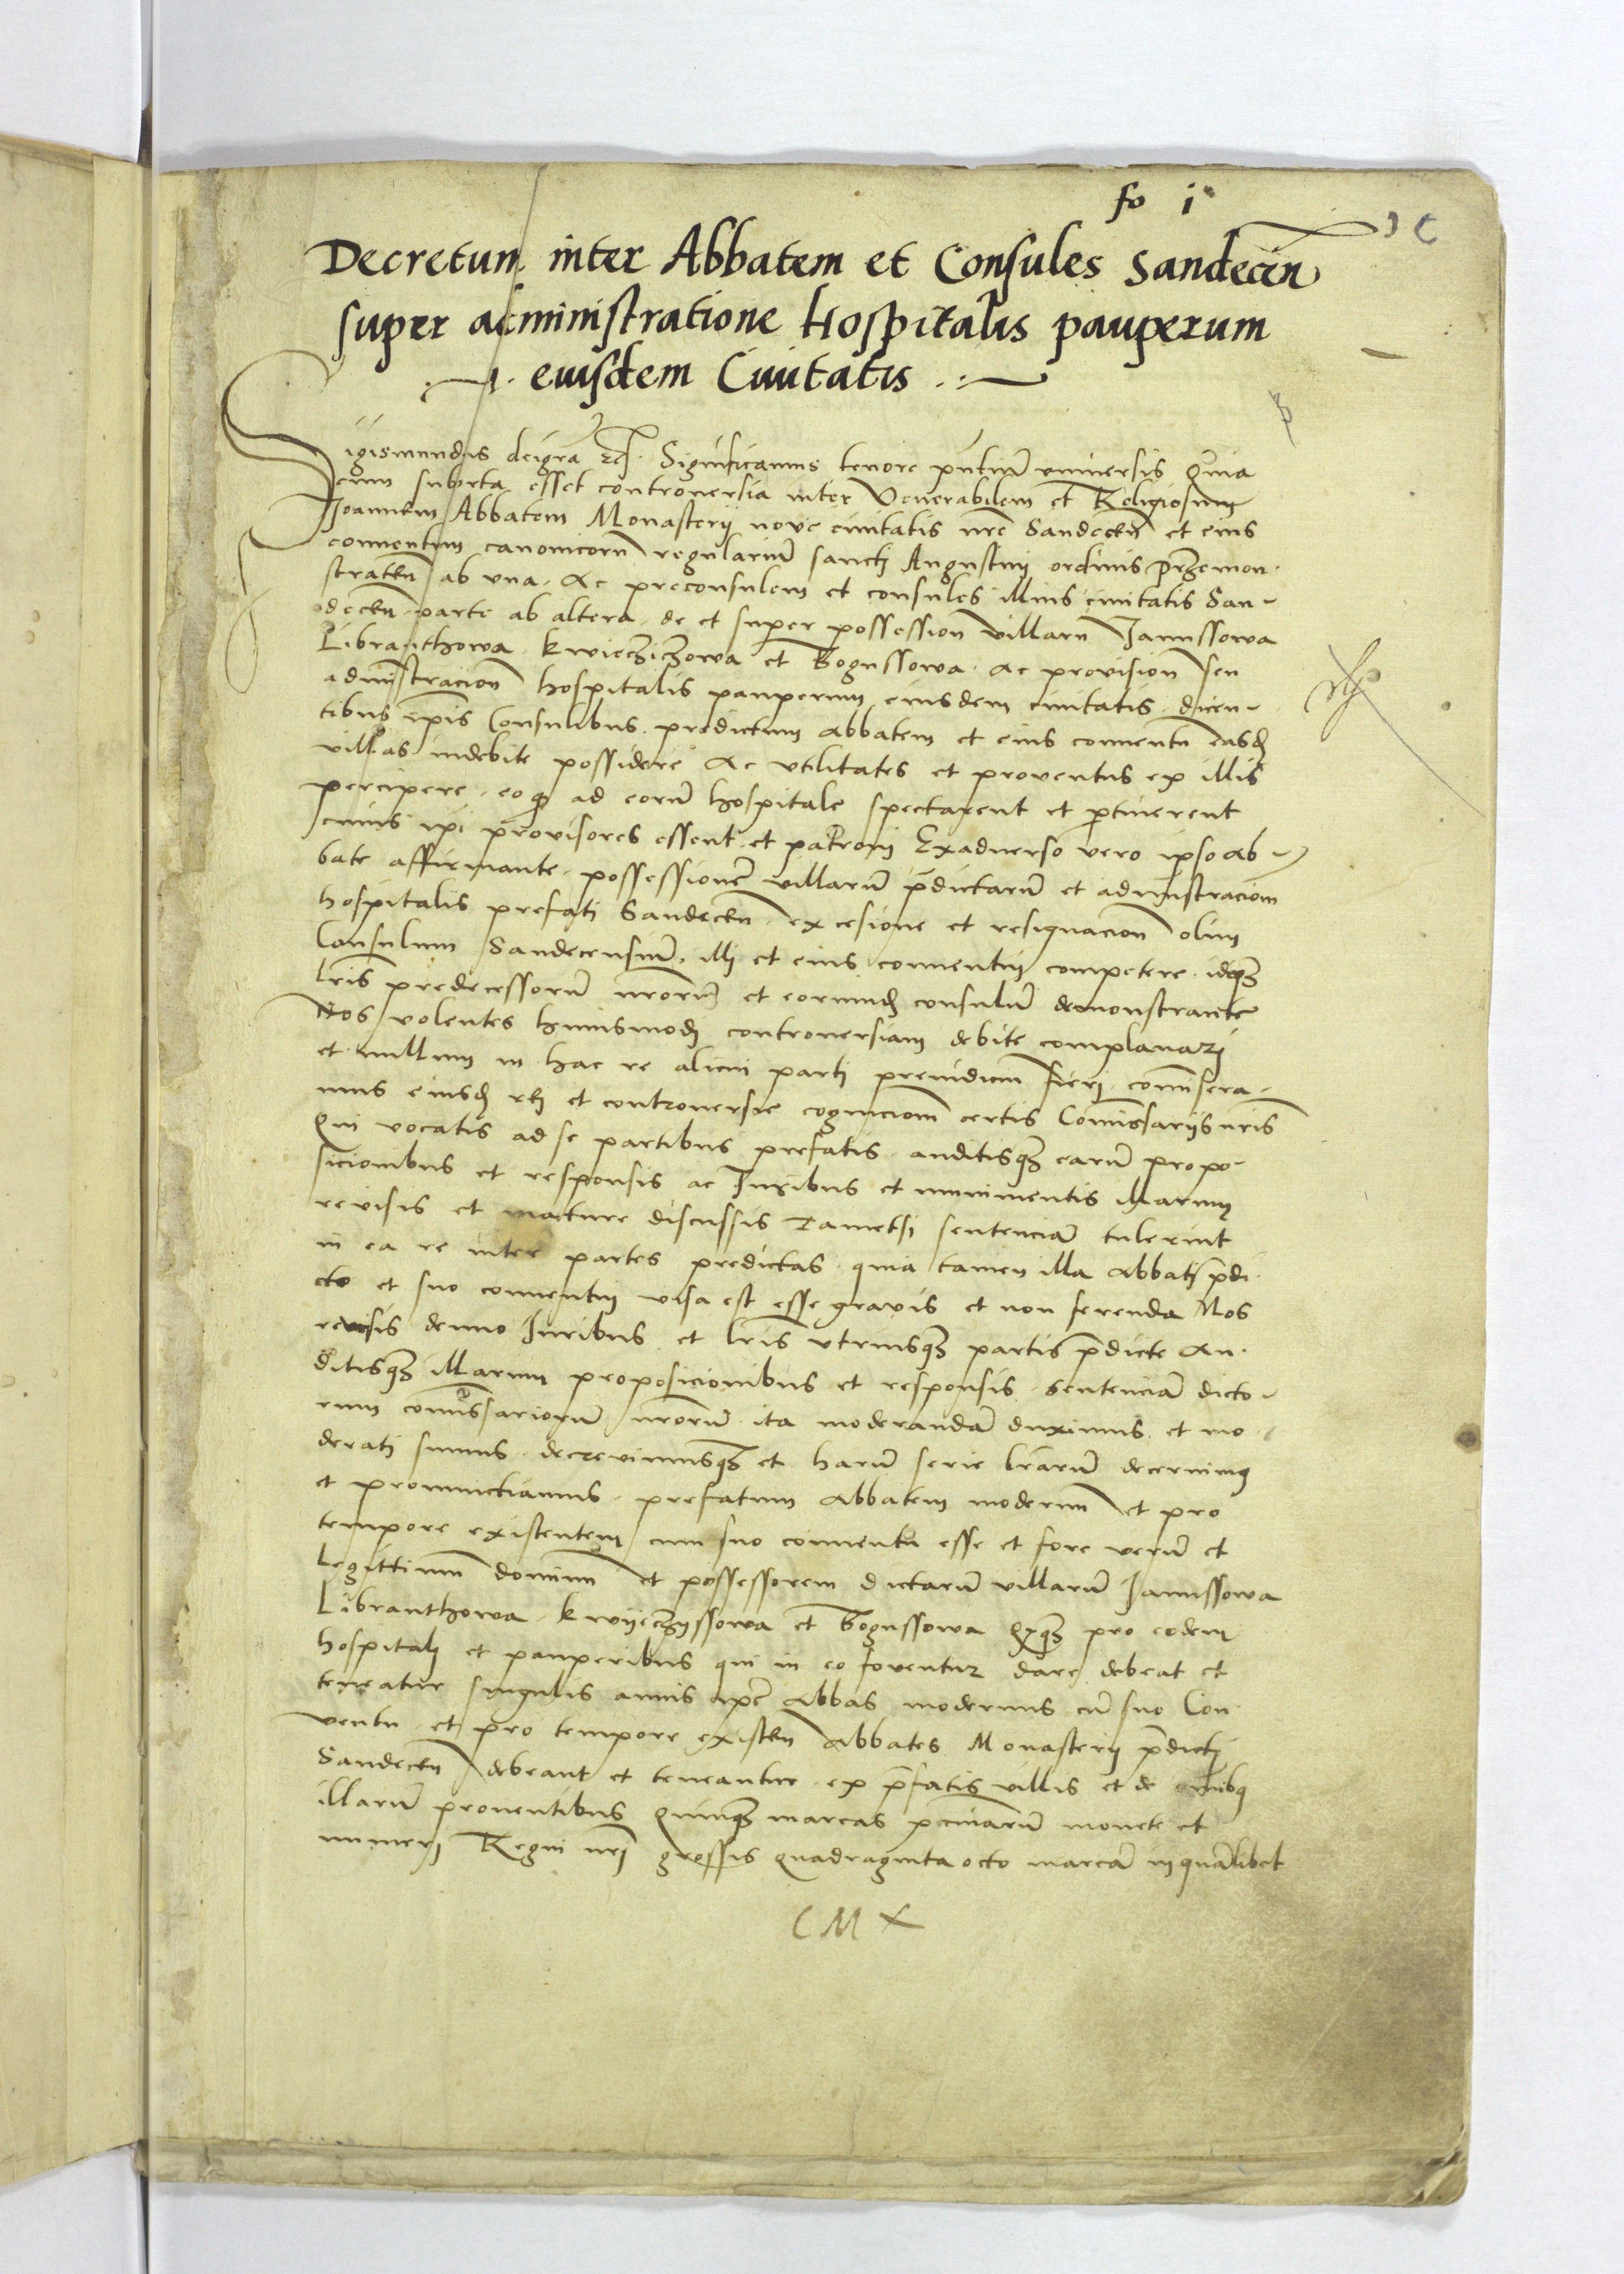 fo i
Decretum inter Abbatem et Consules Sandecen̄
super administratione Hospitalis pauperum
eiusdem Civitatis
Sigismundus dei gr̄a etc. Significamus tenore pn̄tium vniuersis Quia
cum suborta esset controuersia inter Venerabilem et Religiosum
Joannem Abbatem Monasterij noue ciuitatis nr̄e Sandecen̄ et eius
conuentum canonicorū regulariū sancti Augustini ordinis Prȩmon-
straten̄ ab vna. Ac preconsulem et consules illius ciuitatis San-
decen̄ parte ab altera. de et super possession̄ villarū Janussowa
Libranthowa. Kwieczičzowa et Bogussowa. ac provision̄ seu
administracion̄ hospitalis pauperum eiusdem ciuitatis. dicen-
tibus ip̄is Consulibus. predictum abbatem et eius conuentū easd̄
villas indebite possidere Ac vtilitates et proventus ex illis
percipere. eo q̄ ad eorū hospitale spectarent et ꝑtinerent
cuius ip̄i provisores essent et patroni Exaduerso vero ipso Ab-
bate affirmante. possessionē villarū p̄dictarū et administracion̄
hospitalis prefati Sandecen̄. ex cesione et resignacion̄ olim
Consulum Sandecensiū. illi et eius conuentui competere. idqȝ
lr̄is predecessorū nr̄orū et eorund̄ consulū demonstrante
Nos volentes huiusmodi controuersiam debite complanari
et nullum in hac re alicui parti preiudiciū fieri. com̄isera-
mus eiusd̄ rei et controuersie cognicion̄ certis Com̄issariis nr̄is
Qui vocatis ad se partibus prefatis. auditisqȝ earū propo-
sicionibus et responsis ac Juribus et munimentis illarum
revisis et mature discussis Tametsi sentenciā tulerint
in ea re inter partes predictas. quia tamen illa Abbati p̄di-
cto et suo conuentui visa est esse gravis et non ferenda Nos
revisis denuo Juribus et lr̄is vtriusqȝ partis p̄dicte Au-
ditisqȝ illarum proposicionibus et responsis. sentenciā dicto-
rum com̄issariorū nr̄orū ita moderandā duximus. et mo-
derati sumus. decrevimusqȝ et harū serie lr̄arū decernimus
et pronunctiamus. prefatum abbatem modernū et pro
tempore existentem cum suo conuentu esse et fore verū et
Legittimū dominū et possessorem dictarū villarū Janussowa
Libranthowa. Kwyeczyssowa et Bogussowa Qȝ pro eodem
hospitali et pauperibus qui in eo foventur dare debeat et
teneatur singulis annis ip̄e Abbas modernus cū suo Con-
ventu. et pro tempore existen̄ Abbates Monasterij p̄dicti
Sandecen̄ debeant et teneantur. ex p̄fatis villis et de om̄ibus
illarū proventibus Quinqȝ marcas pecuniarū monete et
numeri Regni nr̄i grossis quadraginta octo marcā in quālibet
CM X